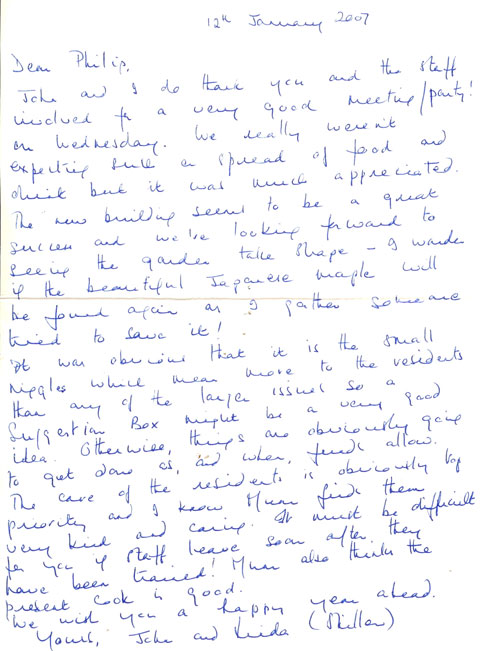 12th January 2007
Dear Philip,
John and I do thank you and the staff
involved for a very good meeting/party!
on Wednesday. We really weren't
expecting such a spread of food and
drink but it was much appreciated.
The new building seems to be a great
success and we're looking forward to
seeing the garden take shape - I wonder
if the beautiful Japanese maple will
be found again as I gather someone
tried to save it!
It was obvious that it is the small
niggles which mean more to the residents
than any of the larger issues so a
Suggestion Box might be a very good
idea. Otherwise, things are obviously going
to get done as, and when, funds allow.
The care of the residents is obviously top
priority and I know Mum finds them
very kind and caring. It must be difficult
for you if staff leave soon after they
have been trained! Mum also thinks the
present cook is good.
We wish you a happy year ahead.
Yours, John and Linda